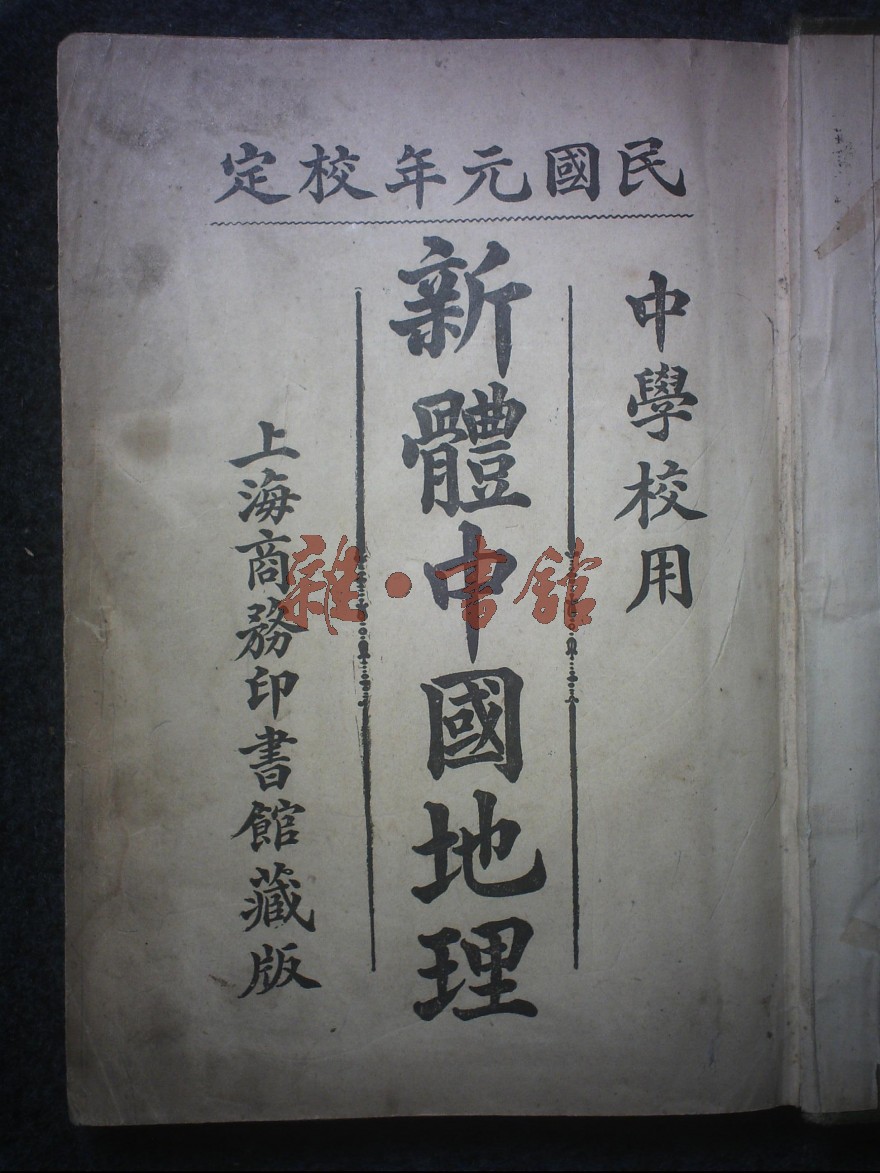 民國元年校定
中學校用
新體中國地理
上海商務印書館藏版
雜·書館